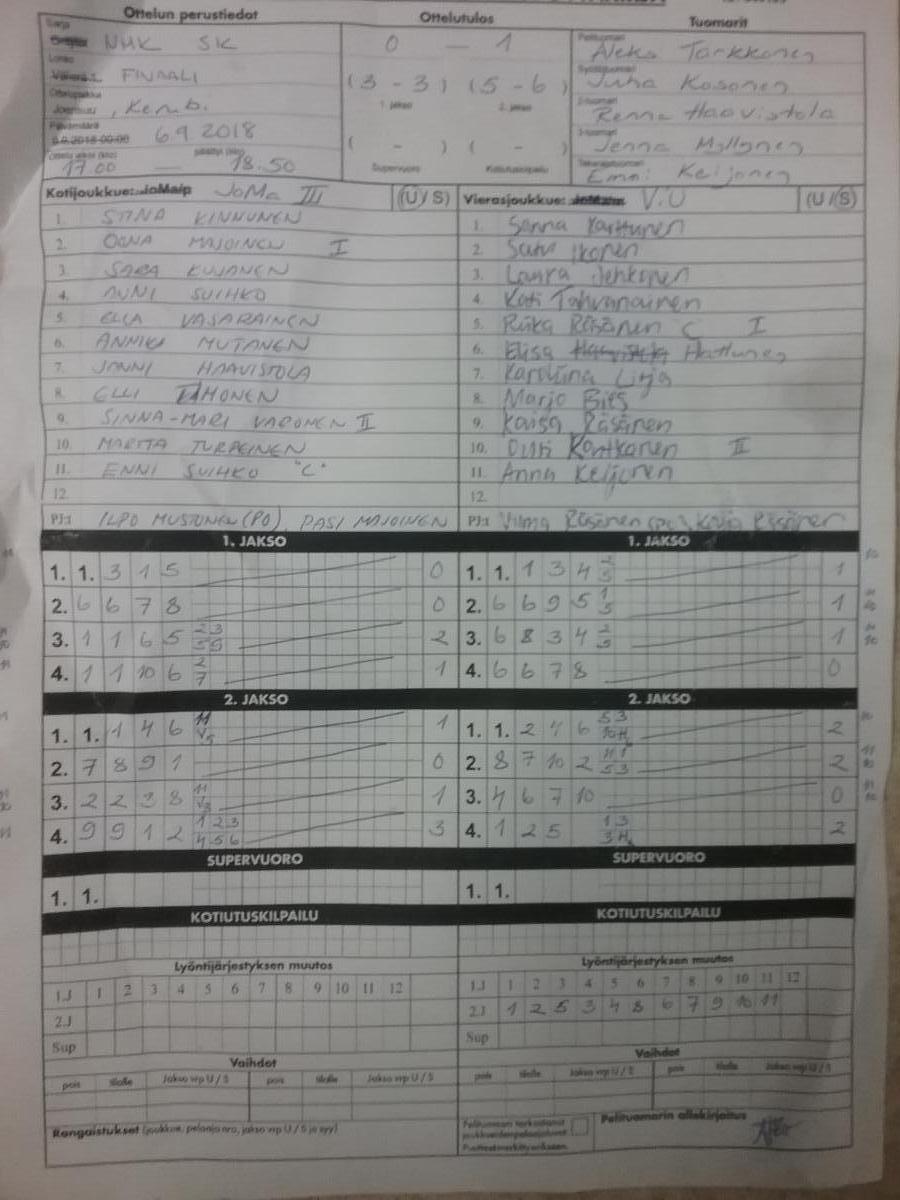 Ottelun perustiedot
Ottelutulos
Tuomarit
Sarja
NMK SK
0 - 1
Pelituomari
Aleksi Tarkkonen
Lohko
FINAALI
(3 - 3) (5 - 6)
1. jakso 2. jakso
Syöttötuomari
Juha Kosonen
Ottelupaikka
Joensuu, Kerub.
2-tuomari
Renna Haavistola
Päivämäärä
6.9.2018
( - ) ( - )
Supervuoro Kotiutuskilpailu
3-tuomari
Jenna Myllynen
Ottelu alkoi (klo) päättyi (klo)
17.00 18.50
Takarajatuomari
Emmi Keijonen
Kotijoukkue: JoMaip JoMa III (U/S)
1. STINA KINNUNEN
2. OONA MAJOINEN I
3. SARA KUJANEN
4. AUNI SUIHKO
5. ELLA VASARAINEN
6. ANNIKA MUTANEN
7. JANNI HAAVISTOLA
8. ELLI TAHONEN
9. SINNA-MARI VARONEN II
10. MARITA TURPEINEN
11. ENNI SUIHKO "C"
12.
PJ:t ILPO MUSTONEN (PO), PASI MAJOINEN
Vierasjoukkue: V.U (U/S)
1. Sanna Karttunen
2. Satu Ikonen
3. Laura Jehkonen
4. Kati Tahvanainen
5. Riika Räsänen C I
6. Elisa Hattunen
7. Karoliina Lirja
8. Marjo Bies
9. Kaisa Räsänen
10. Outi Kontkanen II
11. Anna Keijonen
12.
PJ:t Vilma Räsänen (PO), Kaija Räsänen
1. JAKSO
1. 1. 3 1 5 0
2. 6 6 7 8 0
3. 1 1 6 5 2 3 5 9 2
4. 1 1 10 6 2 7 1
1. JAKSO
1. 1. 1 3 4 2 5 1
2. 6 6 9 5 1 5 1
3. 6 8 3 4 2 5 1
4. 6 6 7 8 0
2. JAKSO
1. 1. 1 4 6 11 V5 1
2. 7 8 9 1 0
3. 2 2 3 8 11 V3 1
4. 9 9 1 2 1 2 3 4 5 6 3
2. JAKSO
1. 1. 2 7 6 5 3 10 H 2
2. 8 7 10 2 11 1 5 3 2
3. 4 6 7 10 0
4. 1 2 5 1 3 3 H 2
SUPERVUORO
1. 1.
SUPERVUORO
1. 1.
KOTIUTUSKILPAILU
KOTIUTUSKILPAILU
Lyöntijärjestyksen muutos
1.J 1 2 3 4 5 6 7 8 9 10 11 12
2.J
Sup
Lyöntijärjestyksen muutos
1.J 1 2 3 4 5 6 7 8 9 10 11 12
2.J 1 2 5 3 4 8 6 7 9 10 11
Sup
Vaihdot
pois tilalle Jakso vrp U / S pois tilalle Jakso vrp U / S
Vaihdot
pois tilalle Jakso vrp U / S pois tilalle Jakso vrp U / S
Rangaistukset (joukkue, pelaaja nro, jakso vrp U / S ja syy)
Pelituomari tarkastanut
joukkueiden pelaajaluvat
Puutteet merkitty erikseen.
Pelituomarin allekirjoitus